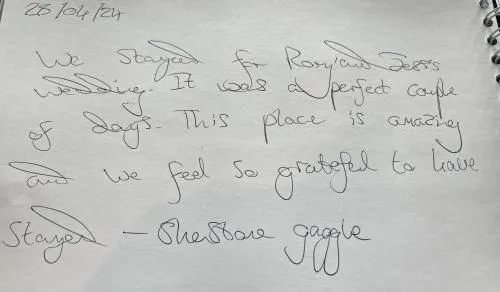 28/04/24
We stayed for Rory and Jess's
wedding. It was a perfect couple
of days. This place is amazing
and we feel so grateful to have
stayed – Sherborne gaggle